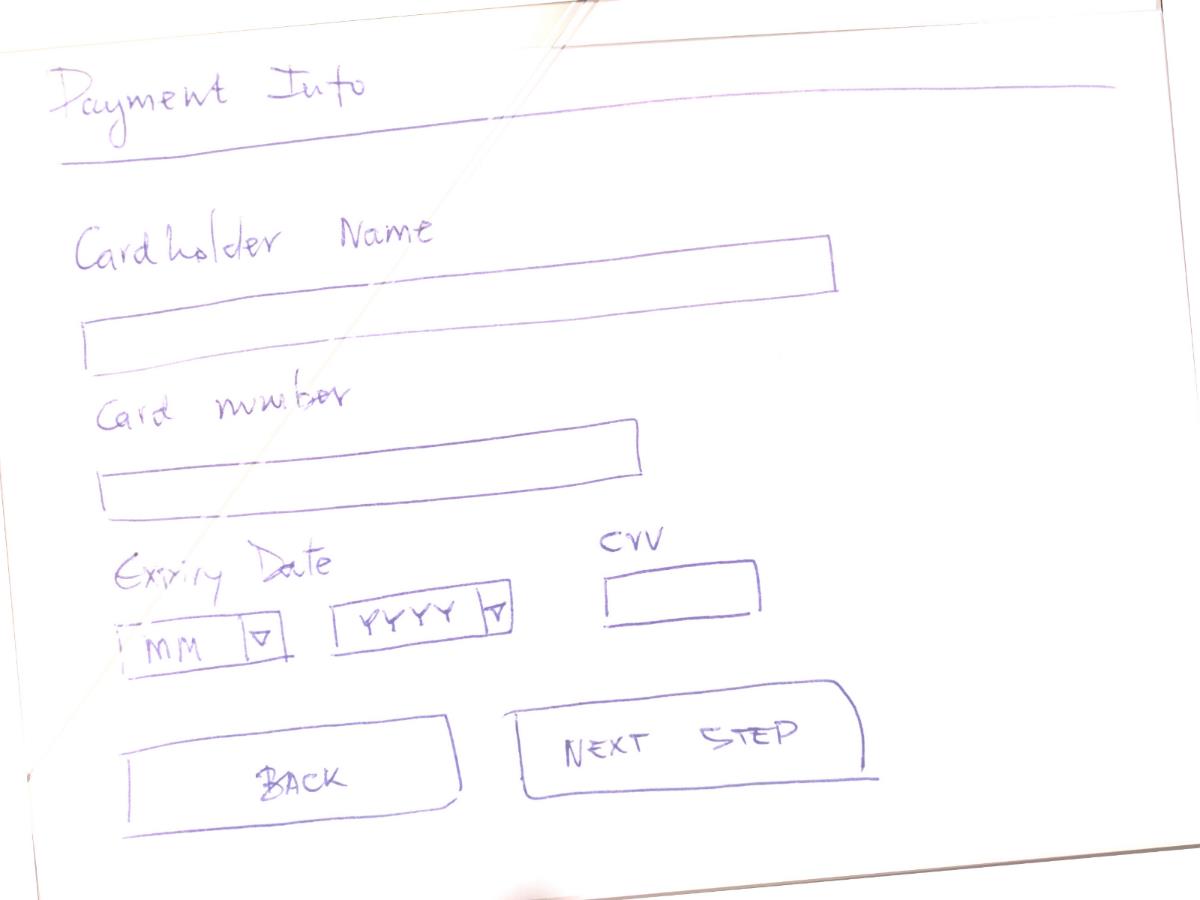 Payment Info
Cardholder Name
Card number
Expiry Date
CVV
MM YYYY
BACK NEXT STEP